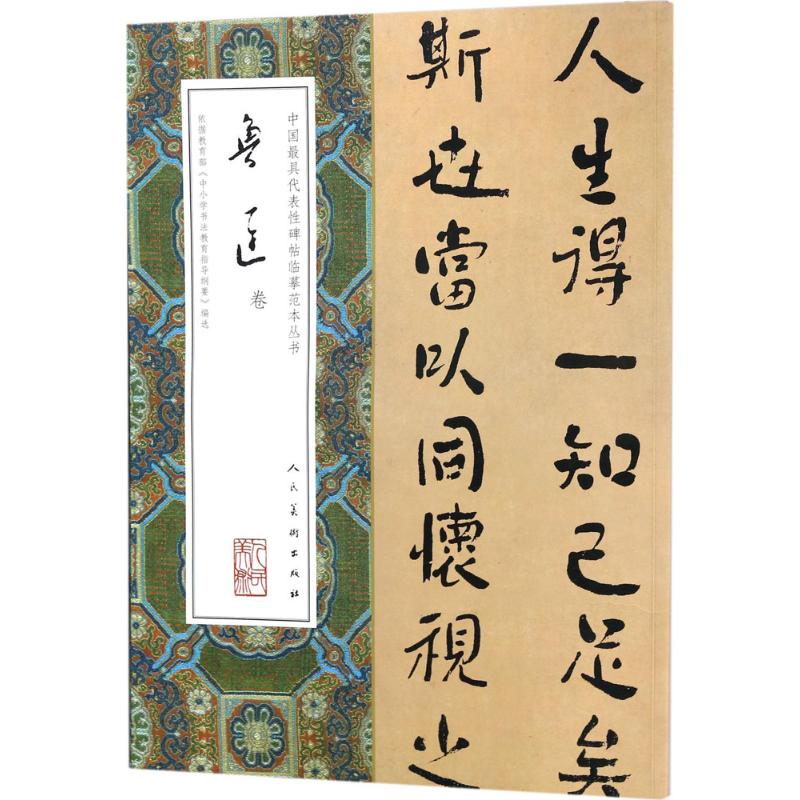 人生得一知己足矣
斯世當以同懷視之
中国最具代表性碑帖临摹范本丛书
魯迅
卷
依据教育部《中小学书法教育指导纲要》编选
人民美術出版社